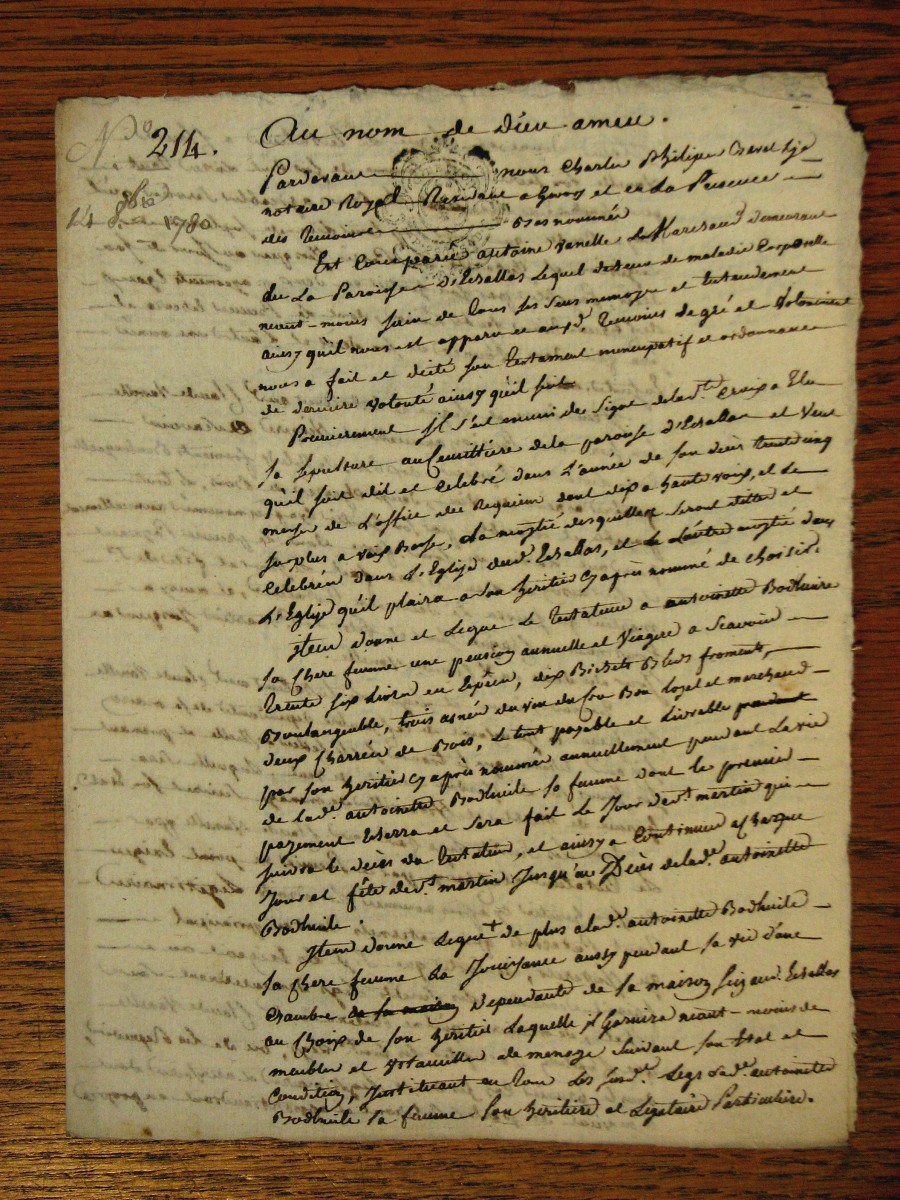 No 214.
14 8bre 1780
Au nom de Dieu amen.
Pardevant nous Charles Philipe
notaire Royal Residant a Givors et en La Presence
des Temoins Bas nommés
Est Comparu antoine Vanelle Marchand demeurant
en La Paroisse d'Echallas Lequel detenu de maladie Corporelle
neant-moins sain de tous ses sens memoire et Entendement
ainsy qu'il nous est apparu et auxd. temoins de gré et Volonté
nous a fait et dicté son testament nuncupatif et ordonnance
de derniere volonté ainsy qu'il suit
Premierement Il s'est muni du Signe de la Ste. Croix a Elu
sa Sepulture au Cemittiere de la paroisse d'Echallas et Veut
qu'il soit dit et Celebré dans L'année de son deces trente cinq
messes de L'office des Requiem dont dix a haute voix, et Le
surplus a voix Basse, La moytié desquelles seront dittes et
Celebrées dans L'Eglise dud. Echallas, et L'autre moytié dans
L'Eglise qu'il plaira a son heritier Cy après nommé de choisir.
Item donne et Legue Le testateur a antoinette Bodhuile
sa Chere femme une pension annuelle et Viagere a Scavoir
trente six Livres en Espèces, dix Bichets Bleds froment,
Boulangeable, trois asnées du vin du Cru Bon Loyal et marchand
deux Charrées de Bois, Le tout payable et Livrable pendant
par son heritier Cy après nommé annuellement pendant La vie
de lad. antoinette Bodhuile sa femme dont le premier
payement Echerra et sera fait le Jour de St. martin qui
suivra le décès du testateur, et ainsy a Continuer a Chaque
Jour et fête de St. martin Jusqu'au Décès de lad. antoinette
Bodhuile.
Item donne Legue de plus a lad. antoinette Bodhuile
sa Chere femme La Jouissance aussy pendant sa vie d'une
Chambre de sa maison Dependante de sa maison Echallas
au Choix de son heritier Laquelle il Garnira neant-moins de
meubles et de menage suivant son Etat et
Condition, Instituant en tous Les susd. Legs lad. antoinette
Bodhuile sa femme son heritiere et Legataire Particuliere.